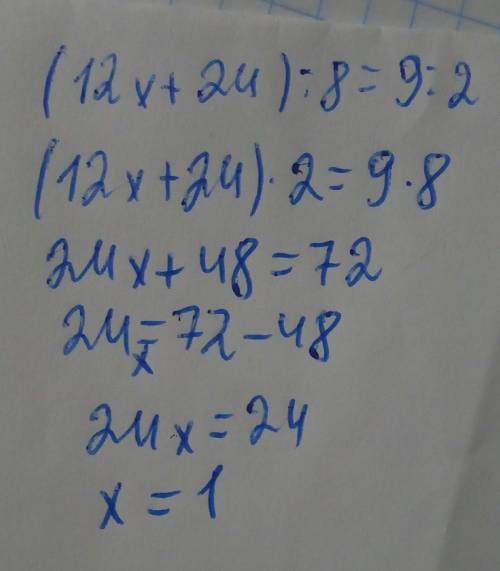 (12x+24):8=9:2
(12x+24)·2=9·8
24x+48=72
24x=72-48
24x=24
x=1